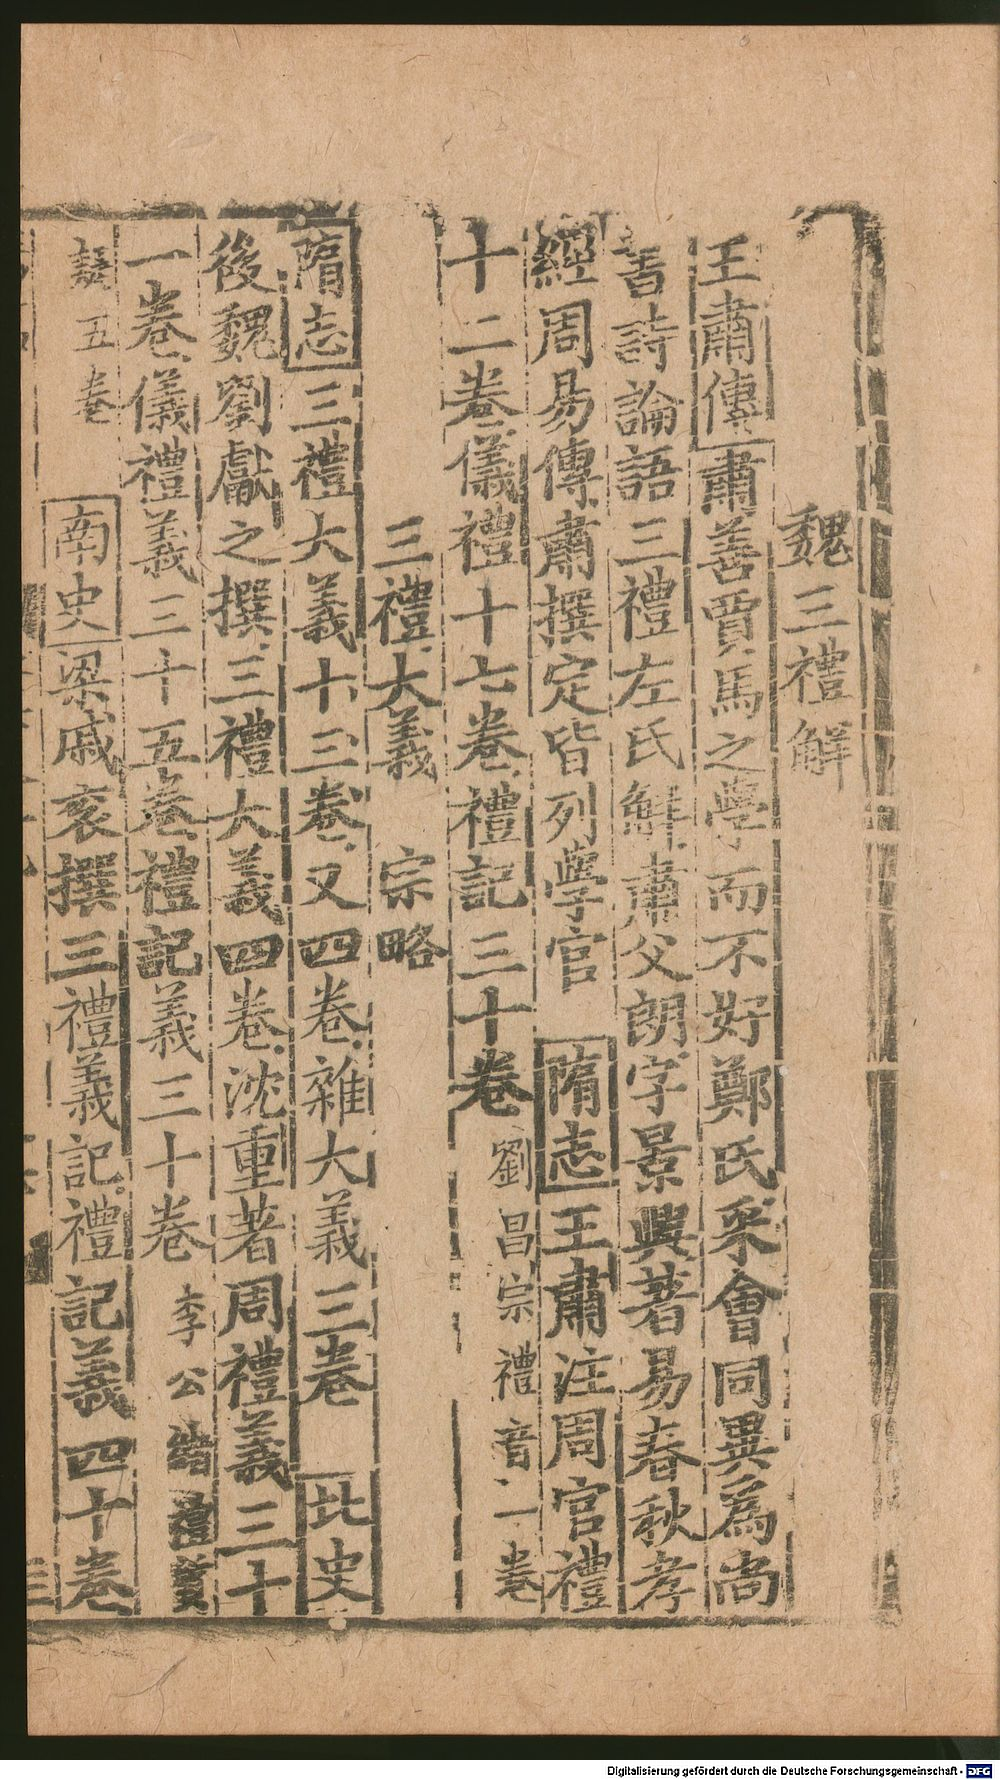 魏三禮解
王肅傳肅善賈馬之學而不好鄭氏采會同異為尚
書詩論語三禮左氏鮮肅父朗字景興著易春秋孝
經周易傳肅撰定皆列學官 隋志王肅注周官禮
十二卷儀禮十七卷禮記三十卷劉昌宗禮音一卷
三禮大義 宗略
隋志三禮大義十三卷又四卷雜大義三卷 北史
後魏劉獻之撰三禮大義四卷沈重著周禮義三十
一卷儀禮義三十五卷禮記義三十卷李公緒禮質
疑五卷 南史梁戚袞撰三禮義記禮記義四十卷
Digitalisierung gefördert durch die Deutsche Forschungsgemeinschaft - DFG